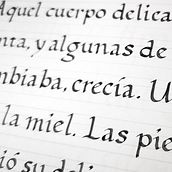 Aquel cuerpo delica
nta, y algunas de
mbiaba, crecía. U
la miel. Las pie
ió su deli